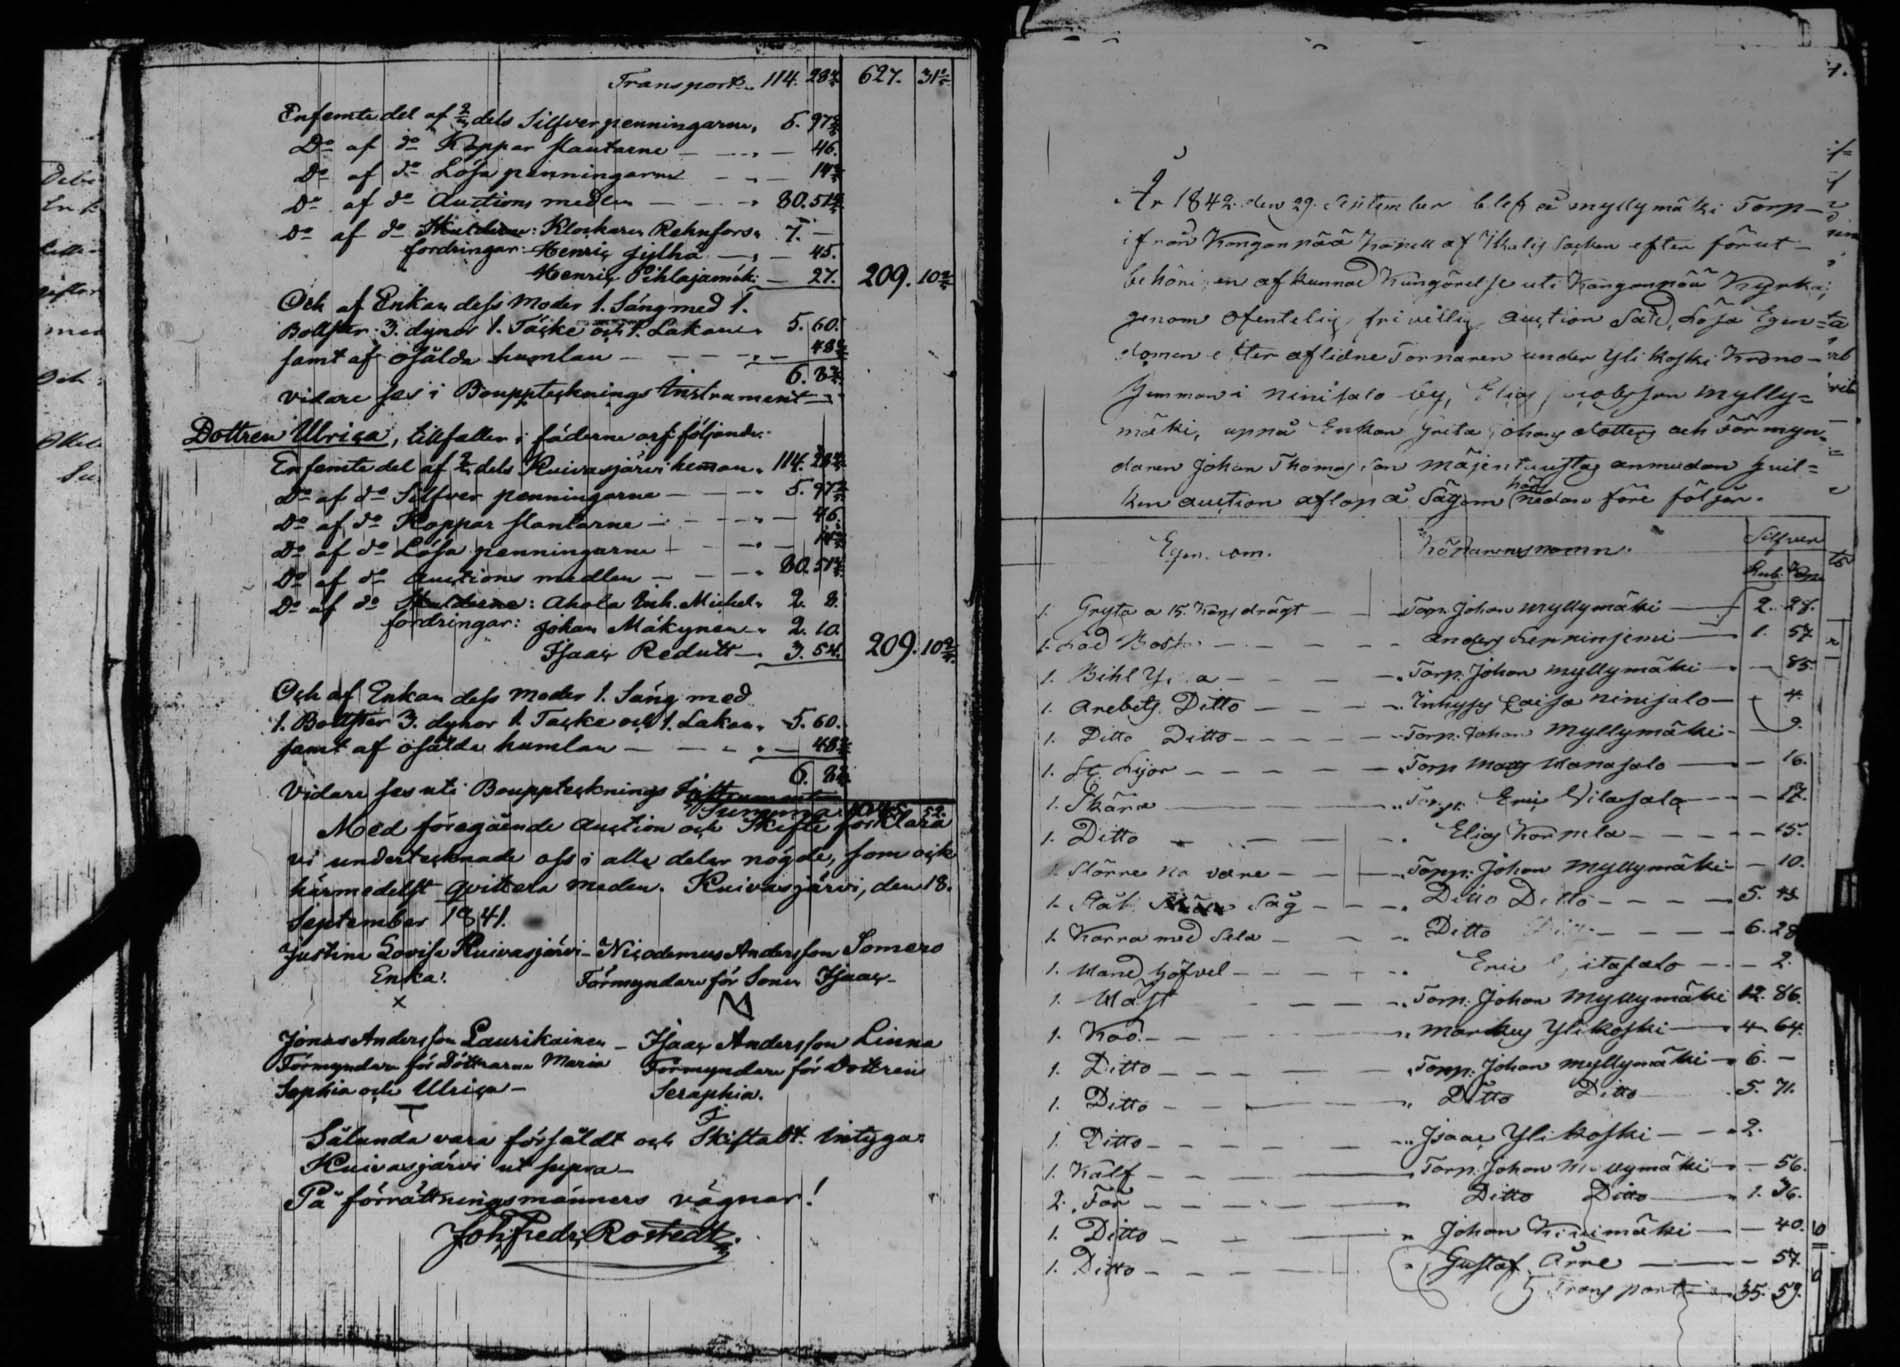 Transport.. 114. 28 4/7 627. 31 2/7
En femte del af 2/3 dels Silfver penningarne, 5. 97
Do af do Koppar slantarne — 46.
Do af do Lösa penningarne — 14
Do af do Auctions medlen — 80. 51
Do af do Skulderne: Klockaren Rehnfors, 7. —
fordringar: Henric Jylhä — 45.
Henric Pihlajamäki — 27. 209. 10
Och af Enkan dess Moder 1. Säng med 1.
Bollster 3. dynor 1. Täcke och 1. Lakan, 5. 60.
samt af osålda humlan — 48
6. 8
vidare ses i Bouppteknings Instrument
Dottren Ulrica, tillfaller i fäderne arf följande:
En femte del af 2/3 dels Kuivasjärvi heman, 114. 28
Do af do Silfver penningarne — 5. 97
Do af do Koppar slantarne — 46.
Do af do Lösa penningarne — 14
Do af do Auctions medlen — 80. 51
Do af do Skulderne: Ahola Enk. Michel, 2. 8.
fordringar: Johan Mäkynen — 2. 10.
Isaac Redutt — 3. 54. 209. 10
Och af Enkan dess Moder 1. Säng med
1. Bollster 3. dynor 1. Täcke och 1. Lakan, 5. 60.
samt af osålda humlan — 48
6. 8
Vidare ses uti Bouppteknings Instrument
Summa 1045. 52.
Med föregående Auction och Skifte förklara
vi undertecknade oss i alla delar nögde, som ock
härmedelst qvittera meden. Kuivasjärvi, den 18.
September 1841.
Justina Lovisa Kuivasjärvi — Nicodemus Andersson Somero
Enka. Förmyndare för Sonen Isaac
Jonas Andersson Laurikainen — Isaac Andersson Linna
Förmyndare för Döttrarne Maria Förmyndare för Dottren
Sophia och Ulrica — Seraphia.
Sålunda vara försåldt och Skiftadt. Intygar
Kuivasjärvi ut supra —
På förrättningsmänners vägnar!
Joh. Fredr. Rostedt.
År 1842. den 29. September blef å Myllymäki Torp
ifrån Kangonpää Kapell af Ikalis Socken efter förut
behörigen afkunnad Kungörelse uti Kangonpää Kyrka,
genom ofentelig frivillig Auction Såld, Lösa Egen-
domen efter aflidne Torparen under Yli Koski Krono
Hemman i Ninisalo by, Elias Jacobsson Mylly=
mäki, uppå Enkan Greta Johans dotters och Förmyn=
daren Johan Thomasson anmodan hvil=
ken auction aflopp å Sätt som här nedan före följer.
Egendom. Köparens namn. Silfver
Rub. Kop.
1. Gryta a 15. Kans drägt — Torp. Johan Myllymäki — 2. 28.
1. Lod — Anders Leppinjemi — 1. 57.
1. Bihl Yxa — Torp. Johan Myllymäki — 85.
1. Arebets Ditto — Inhyses Caisa Ninisalo — 4.
1. Ditto Ditto — Torp. Johan Myllymäki — 9.
1. St. Lijor — Torp. Mats — 16.
1. Skära — Torp. Eric — 17.
1. Ditto — Elias — 15.
1. Större navare — Torp. Johan Myllymäki — 10.
1. Såg — Ditto Ditto — 5. 43
1. Karra med Sela — Ditto Ditto — 6. 28
1. Hand höfvel — Eric — 2.
1. Häst — Torp. Johan Myllymäki 12. 86.
1. Koo. — Marckus Ylikoski — 4. 64.
1. Ditto — Torp. Johan Myllymäki — 6. —
1. Ditto — Ditto Ditto — 5. 71.
1. Ditto — Isaac Ylikoski — 2.
1. Kalf — Torp. Johan Myllymäki — 56.
2. Får — Ditto Ditto — 1. 76.
1. Ditto — Johan Kivimäki — 40.
1. Ditto — Gustaf Arne — 57.
Transport — 35. 59.